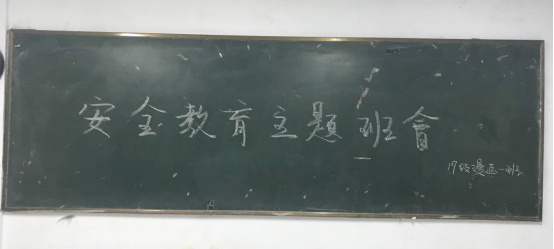 安全教育主题班會
17级漫画一班